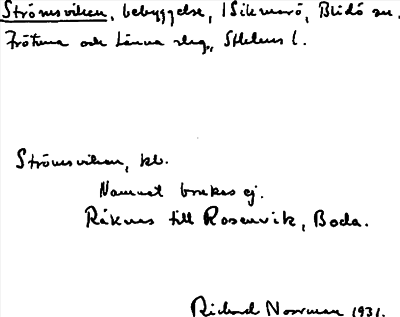 Strömsviken, bebyggelse, 1 Sikmarö, Blidö sn.
Frötuna och Länna slg., Sthlms l.
Strömsviken, kb.
Namnet brukas ej.
Räknas till Rosenvik, Boda.
Richard Norrman 1931.